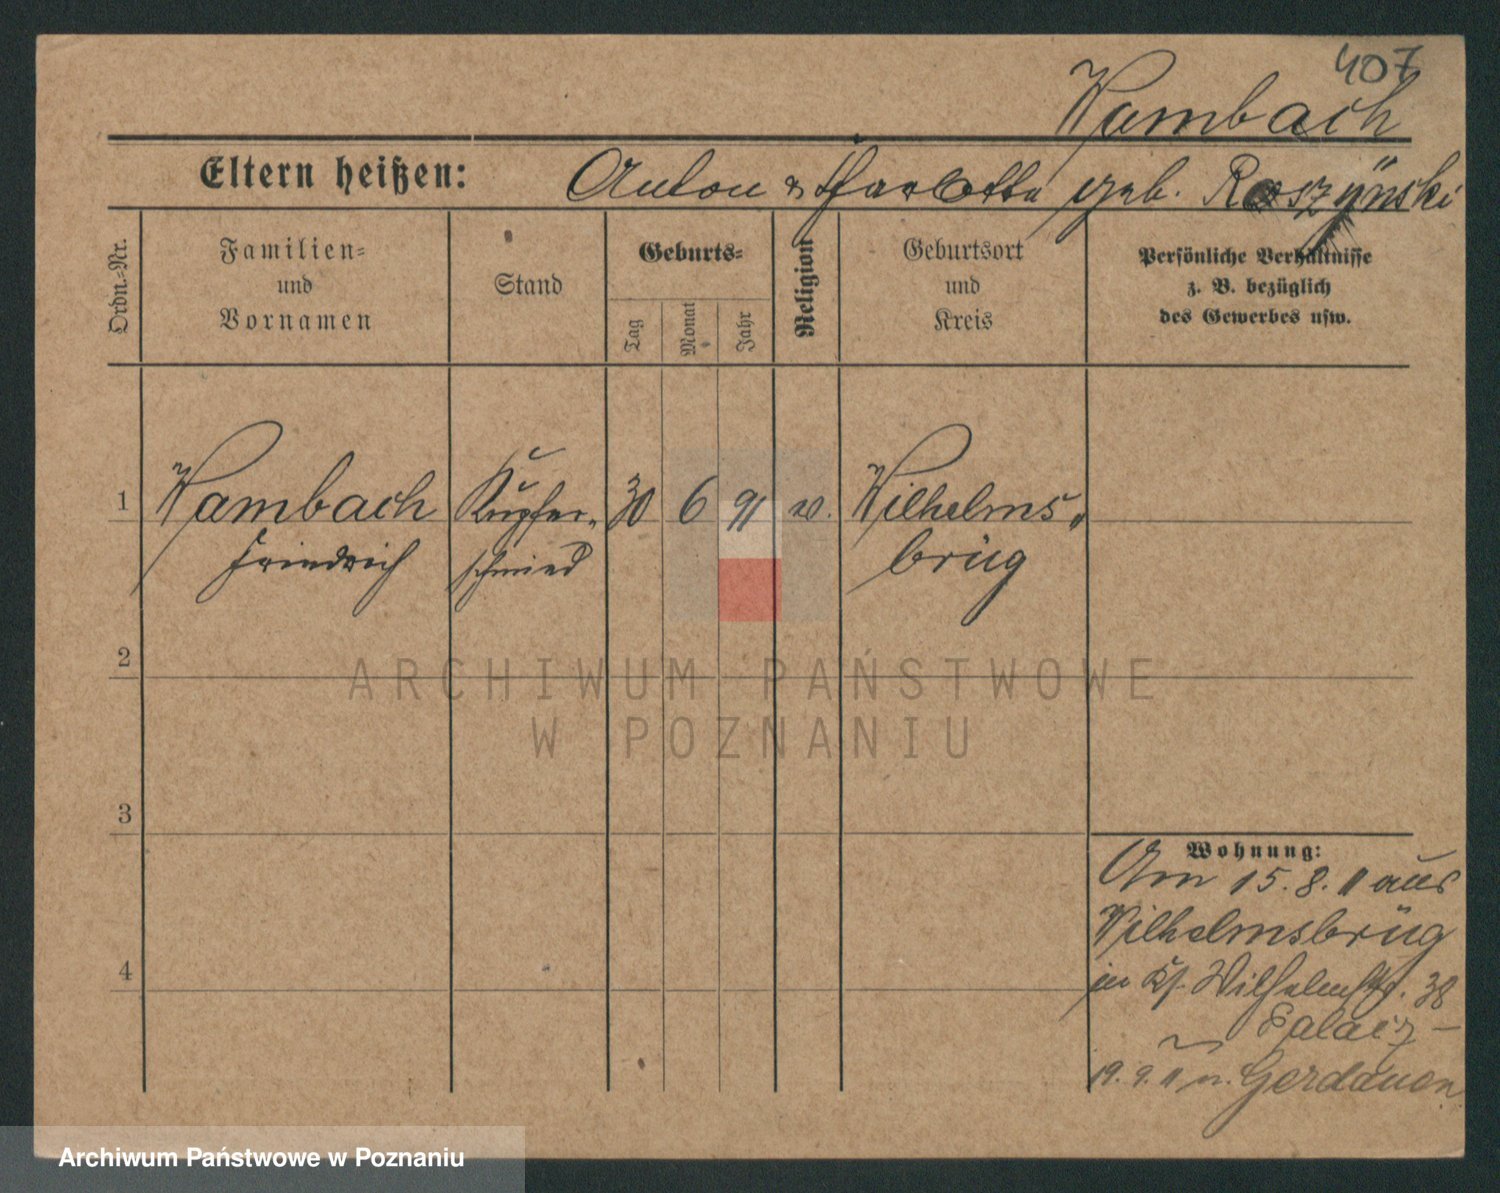 407
Wambach
Eltern heißen: Anton & Charlotte geb. Roszynski
Ordn.=Nr.
Familien=
und
Vornamen
Stand
Geburts=
Tag
Monat
Jahr
Religion
Geburtsort
und
Kreis
Persönliche Verhältnisse
z. B. bezüglich
des Gewerbes usw.
1 Wambach Kupfer- 30 6 91 Wilhelms-
Friedrich schmied brüg
2
3
4
ARCHIWUM PAŃSTWOWE
W POZNANIU
Wohnung:
Am 15. 8. 11 aus
Wilhelmsbrüg
in Wilhelmstr. 38
19. 9. 11 n. Gerdauen
Archiwum Państwowe w Poznaniu